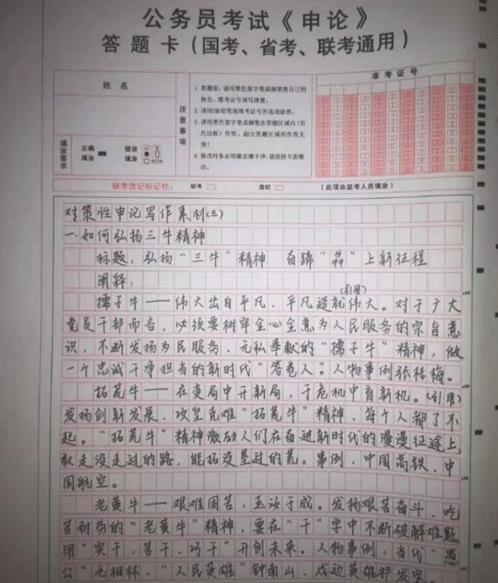 公务员考试《申论》
答题卡（国考、省考、联考通用）
姓名
准考证号
注意事项
填涂要求
正确填涂
错误填涂
缺考违记标记栏：
缺考
违纪
（此项由监考人员填涂）
对策性申论写作素材(三)
一.如何弘扬三牛精神
标题：弘扬“三牛”精神 自蹄“犇”上新征程
阐释：
(引用)
孺子牛——伟大出自平凡，平凡造就伟大。对于广大
党员干部而言，必须要树牢全心全意为人民服务的宗旨意
识，不断发扬为民服务、无私奉献的“孺子牛”精神，做
一个忠诚干净担当的新时代“答卷人”。人物事例张桂梅。
拓荒牛——在变局中开新局，于危机中育新机。(引用)
发扬创新发展、攻坚克难“拓荒牛”精神，每个人都了不
起。“拓荒牛”精神激励人们在奋进新时代的漫漫征途上，
敢走没走过的路，能拓没垦过的荒。事例，中国高铁、中
国航空。
老黄牛——艰难困苦，玉汝于成。发扬艰苦奋斗、吃
苦耐劳的“老黄牛”精神，要在“干”字中不断破解难题
用“实干、苦干、巧干”开创未来。人物事例，当代“愚
公”毛相林、“人民英雄”钟南山、戍边英雄